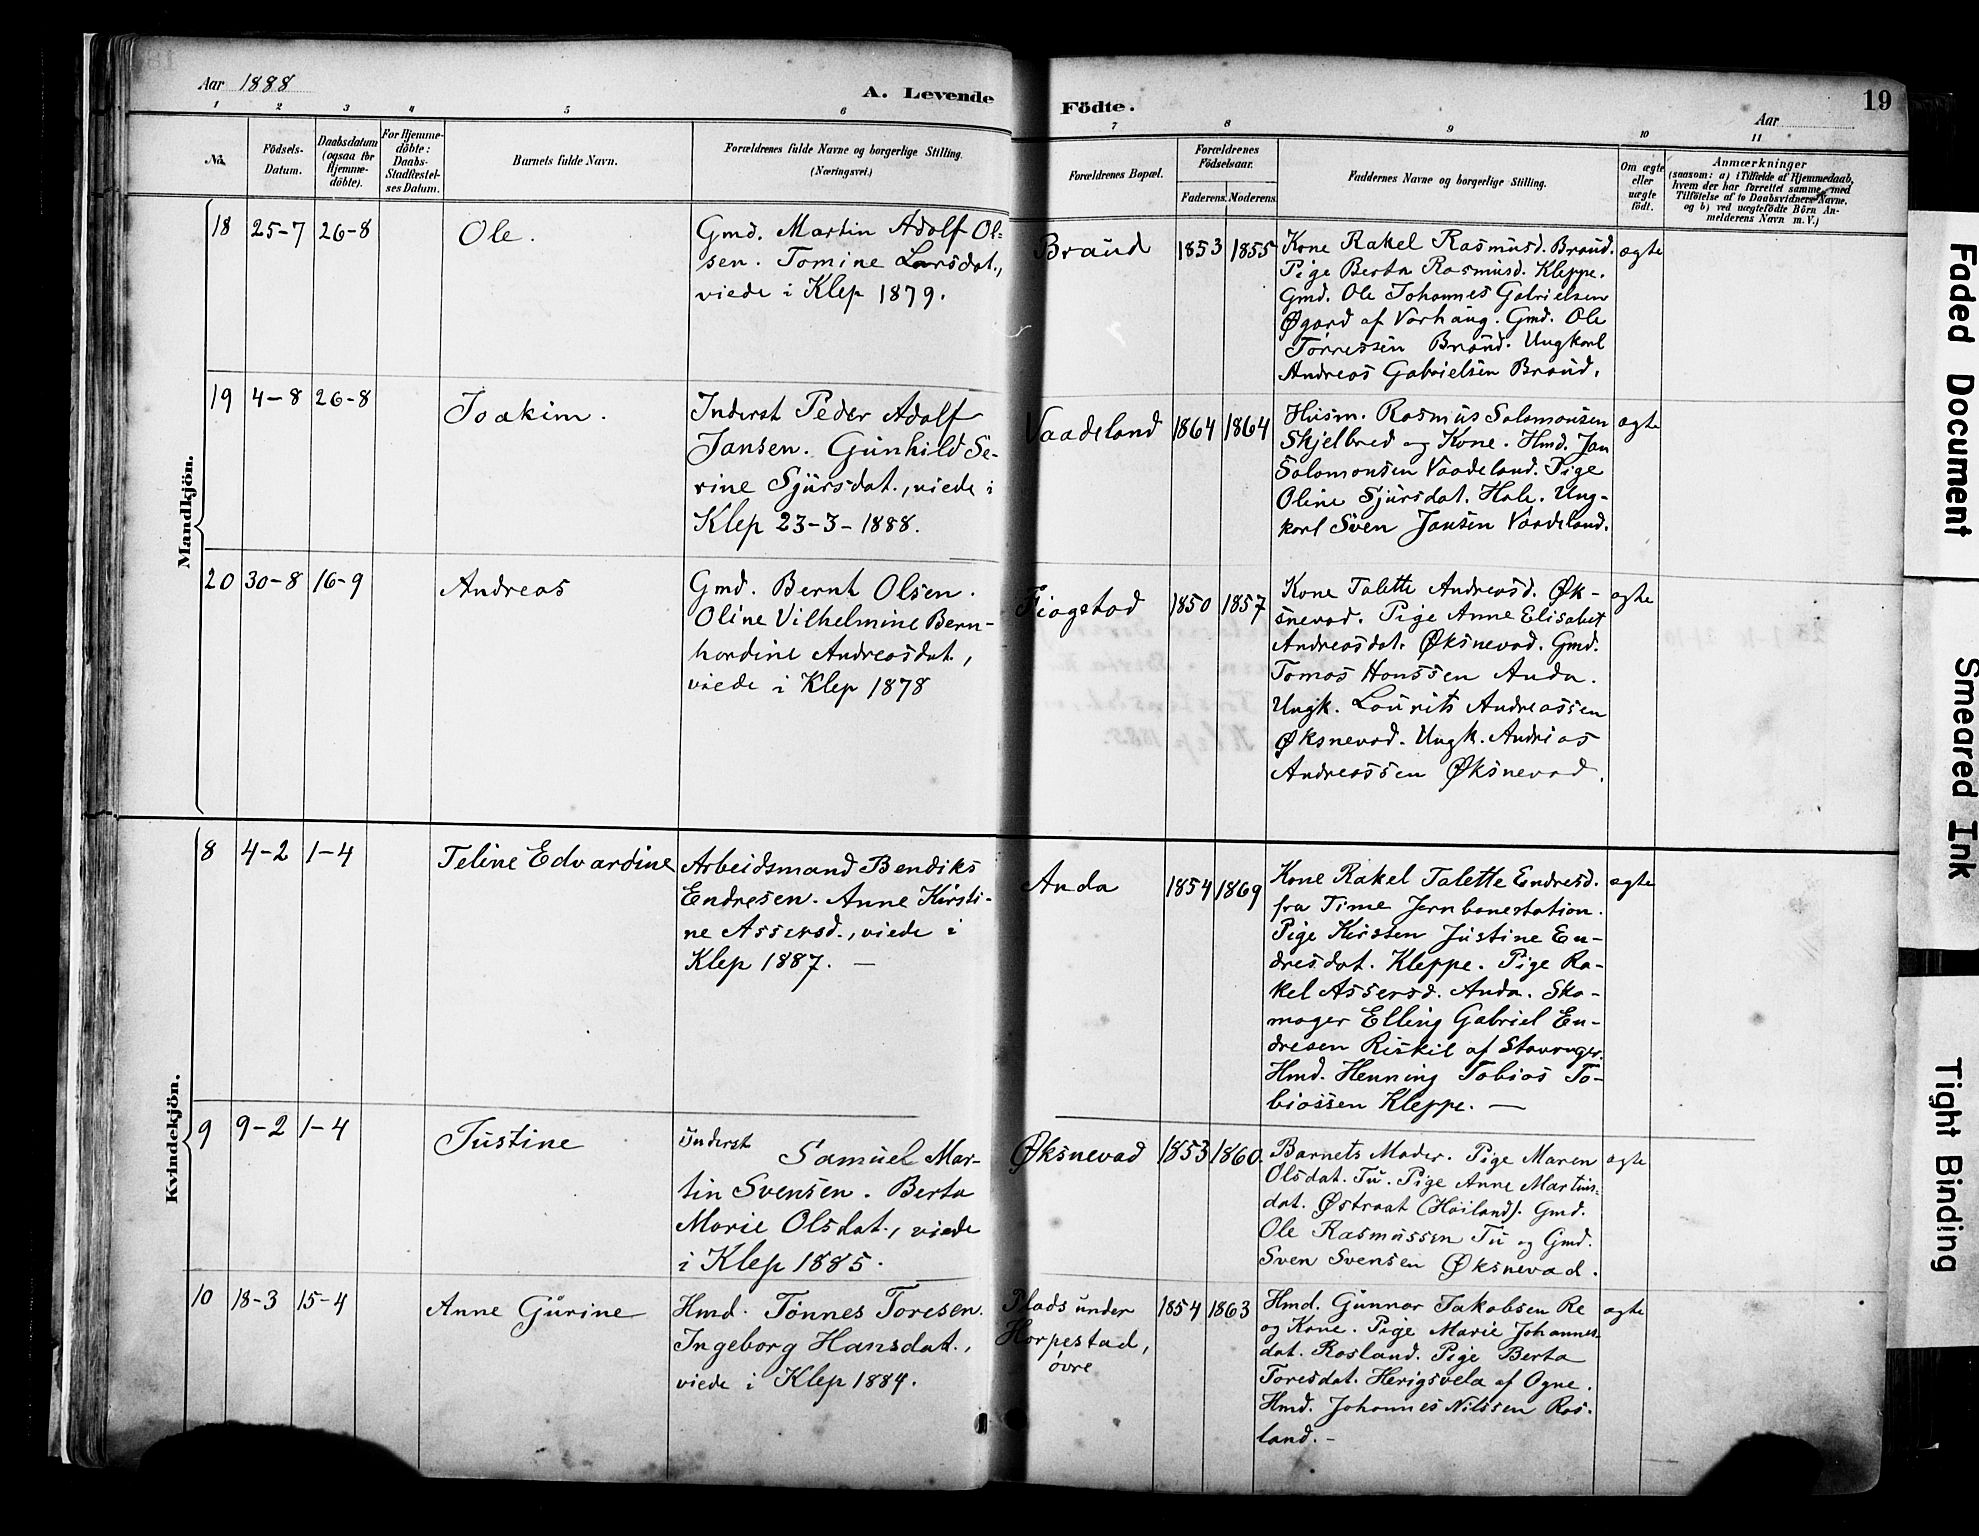 Aar 1888
A. Levende
Födte.
Aar
19
1 2 3 4 5 6 7 8 9 10 11
No.
Födsels-
Datum.
Daabsdatum
(ogsaa for
Hjemme-
döbte).
For Hjemme-
döbte:
Daabs-
Stadfæstel-
ses Datum.
Barnets fulde Navn.
Forældrenes fulde Navne og borgerlige Stilling.
(Næringsvei.)
Forældrenes Bopæl.
Forældrenes
Födselsaar.
Faderens. Moderens.
Faddernes Navne og borgerlige Stilling.
Om ægte
eller
uægte
födt.
Anmærkninger
(saasom: a) i Tilfælde af Hjemmedaab,
hvem der har forrettet samme, med
Tilföielse af to Daabsvidners Navne.
og b) ved uægtefödte Börn An-
melderens Navn m. V.)
Mandkjön.
18 25-7 26-8
Ole.
Gmd. Martin Adolf Ol-
sen. Tomine Larsdat.,
viede i Klep 1879.
Braud
1853 1855
Kone Rakel Rasmusd. Braud.
Pige Berta Rasmusd. Kleppe.
Gmd. Ole Johannes Gabrielsen
Øgard af Varhaug. Gmd. Ole
Tørressen Braud. Ungkarl
Andreas Gabrielsen Braud.
ægte
19 4-8 26-8
Joakim.
Inderst Peder Adolf
Jansen. Gunhild Se-
rine Sjursdat., viede i
Klep 23-3-1888.
Vaadeland
1864 1864
Husm. Rasmus Salomonsen
Skjelbred og Kone. Hmd. Jan
Salomonsen Vaadeland. Pige
Oline Sjursdat. Hole. Ung-
karl Sven Jansen Vaadeland.
ægte
20 30-8 16-9
Andreas
Gmd. Bernt Olsen.
Oline Vilhelmine Bern-
hardine Andreasdat.,
viede i Klep 1878
Tiagstad
1850 1857
Kone Talette Andreasd. Øk-
snevad. Pige Anne Elisabet
Andreasdat. Øksnevad. Gmd.
Tomas Hanssen Anda.
Ungk. Laurits Andreassen
Øksnevad. Ungk. Andreas
Andreassen Øksnevad.
ægte
Kvindekjön.
8 4-2 1-4
Teline Edvardine
Arbeidsmand Bendiks
Endresen. Anne Kirsti-
ne Assersd., viede i
Klep 1887. —
Anda
1854 1869
Kone Rakel Talette Endresd.
fra Time Jernbanestation.
Pige Kirsten Justine En-
dresdat. Kleppe. Pige Ra-
kel Assersd. Anda. Sko-
mager Elling Gabriel En-
dresen Riskil af Stavanger.
Hmd. Henning Tobias To-
biassen Kleppe. —
ægte
9 9-2 1-4
Justine
Inderst Samuel Mar-
tin Svensen. Berta
Marie Olsdat., viede
i Klep 1885.
Øksnevad
1853 1860.
Barnets Moder. Pige Maren
Olsdat. Tu. Pige Anne Martins-
dat. Østraat (Høiland). Gmd.
Ole Rasmussen Tu og Gmd.
Sven Svensen Øksnevad.
ægte
10 18-3 15-4
Anne Gurine
Hmd. Tønnes Toresen.
Ingeborg Hansdat.,
viede i Klep 1884.
Plads under
Horpestad,
øvre
1854 1863
Hmd. Gunnar Jakobsen Re
og Kone. Pige Marie Johannes-
dat. Rosland. Pige Berta
Toresdat. Herigsvela af Ogne.
Hmd. Johannes Nilssen Ros-
land. —
ægte
Faded Document
Smeared Ink
Tight Binding